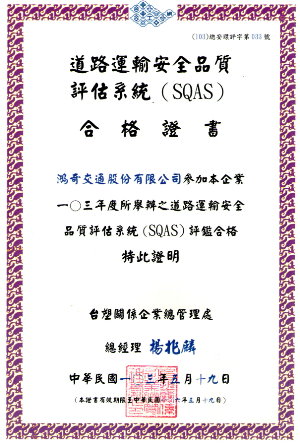 (103)總安環評字第D33號
道路運輸安全品質
評估系統(SQAS)
合格證書
鴻奇交通股份有限公司參加本企業
一〇三年度所舉辦之道路運輸安全
品質評估系統(SQAS)評鑑合格
特此證明
台塑關係企業總管理處
總經理 楊兆麟
中華民國一〇三年五月十九日
(本證書有效期限至中華民國一〇六年五月十九日)